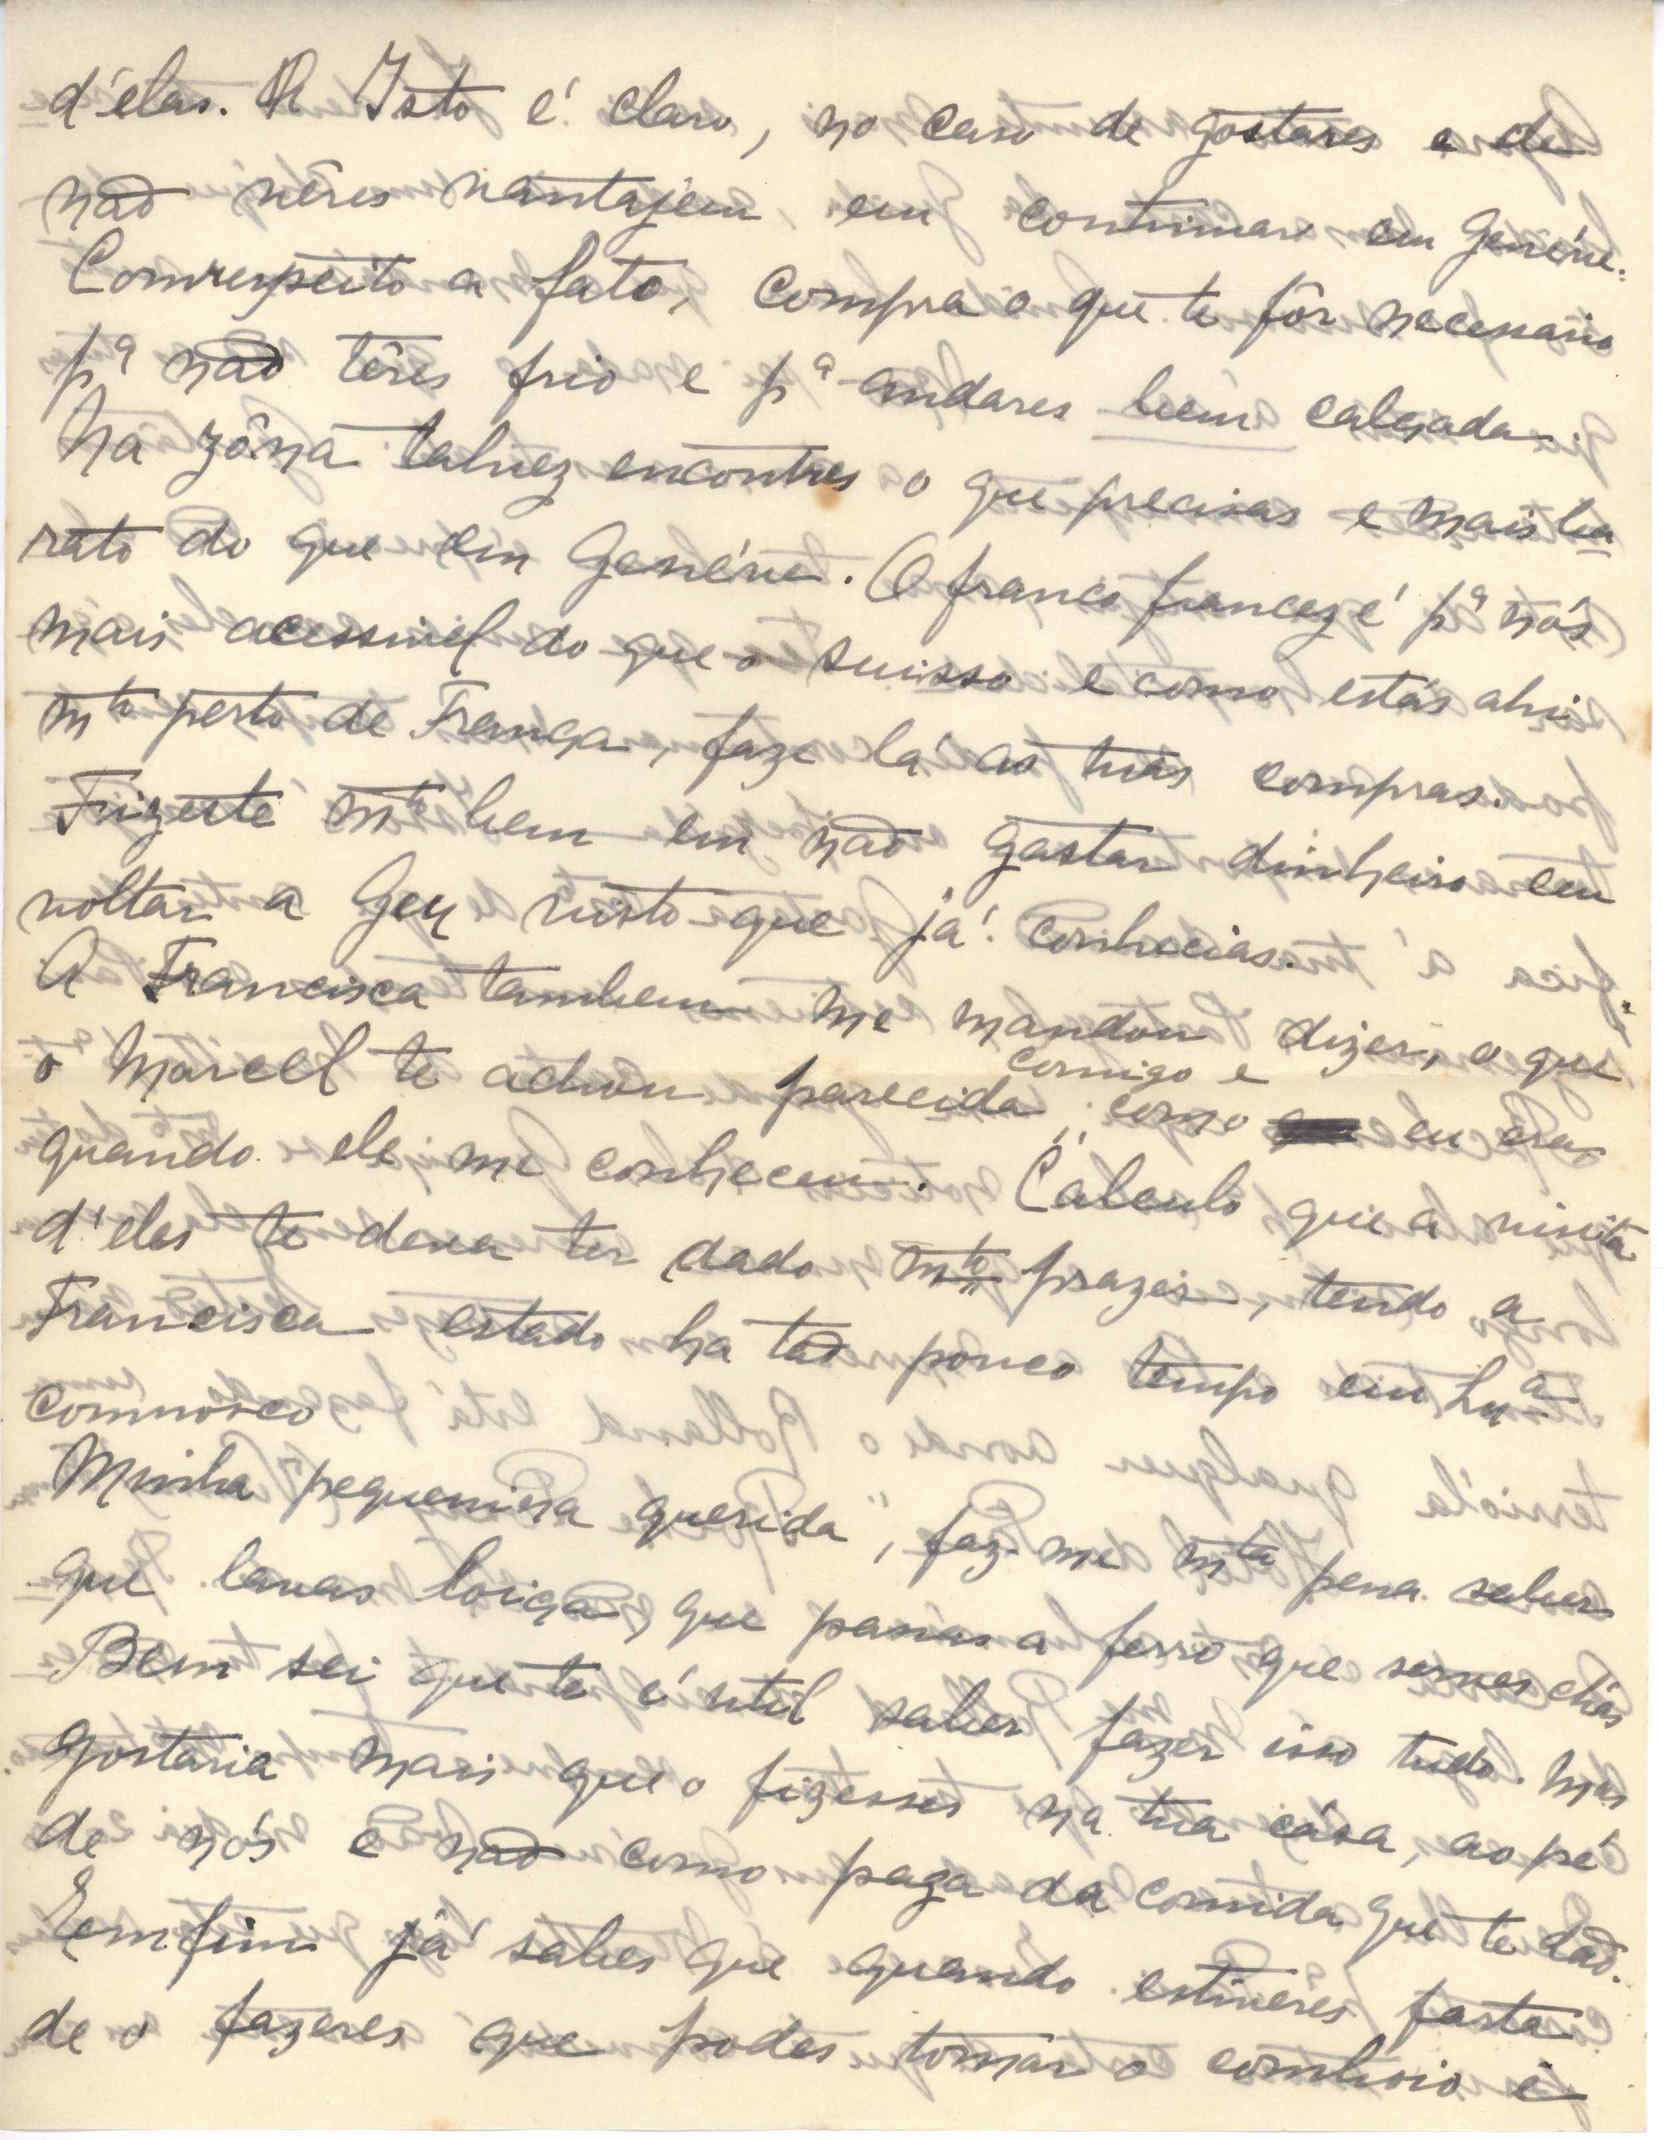 d'élas. Isto é claro, no caso de gostares e de
não vêres vantajem em continuar em Genéve.
Com respeito a fato, compra o que te fôr necessario
pª não têres frio e pª andares bem calçada.
Na zôna talvez encontres o que precisas e mais ba
rato do que em Genéve. O franco francez é pª nós
mais acessivel do que o suisso e como estás ahi
mto perto de França, faze lá as tuas compras.
Fizeste mto bem em não gastar dinheiro em
voltar a Gex visto que já conhecias.
A Francisca tambem me mandou dizer, o que
o Marcel te achou parecida comigo e como eu era,
quando ele me conheceu. Calculo que a visita
d'elas te devia ter dado mto prazer, tendo a
Francisca estado ha tão pouco tempo em Lxª
comnosco
Minha pequenina querida, faz-me mta pena saber
que lavas loiça, que passas a ferro que serves chás
Bem sei que te é util saber fazer isso tudo. Mas
gostaria mais que o fizesses na tua cása, ao pé
de nós e não como paga da comida que te dão.
Emfim já sabes que quando estiveres farta
de o fazeres que podes tomar o comboio e